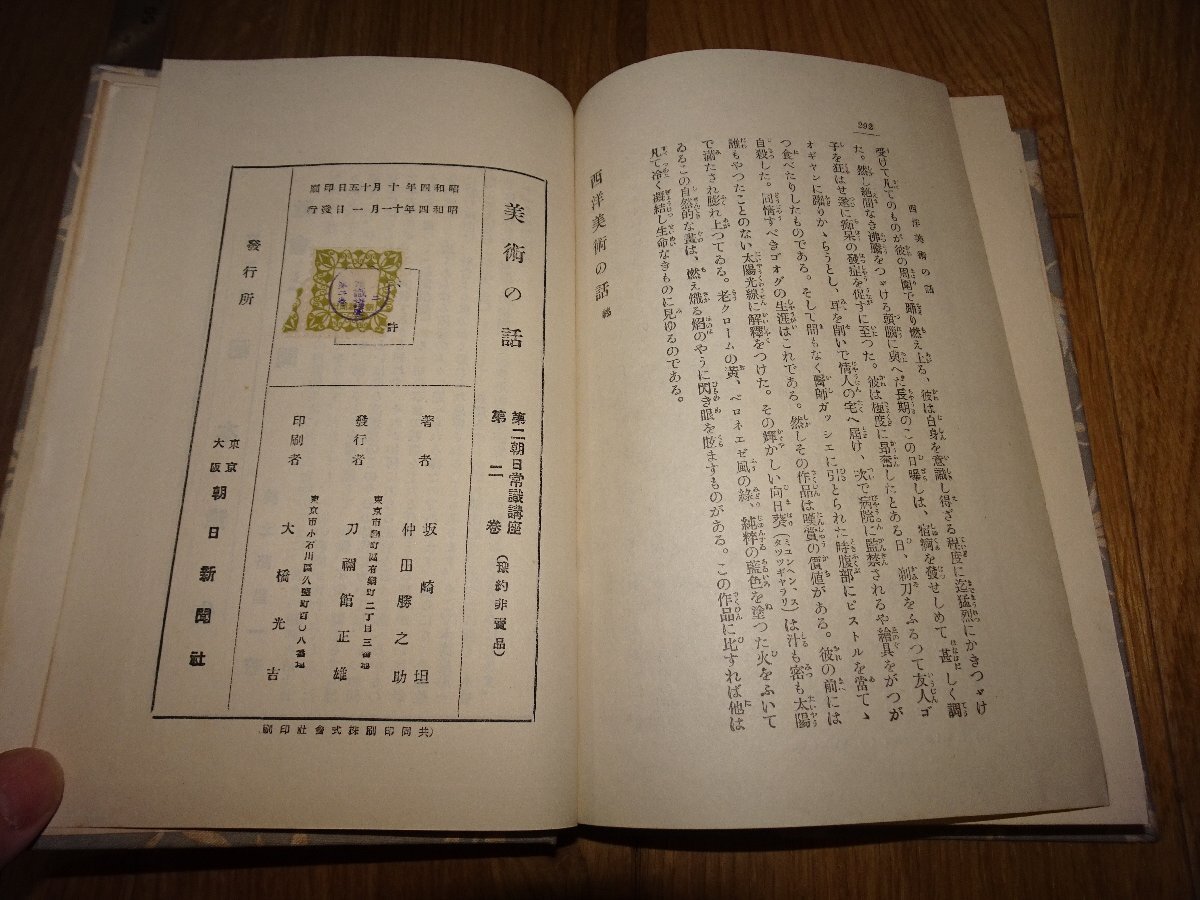 292
西洋美術の話
受けて凡てのものが彼の周圍で踊り燃え上る、彼は自身を意識し得ざる程度に迄猛烈にかきつゞけ
た。然し絶間なき沸騰をつゞける頭腦に與へた長期のこの日曝しは、宿痾を發せしめて甚しく調
子を狂はせ遂に癡呆の徴症を促すに至つた。彼は極度に昂奮したとある日、剃刀をふるつて友人ゴ
オギャンに躍りかゝらうとし、耳を削いで情人の宅へ屆け、次で病院に監禁されるや繪具をがつが
つ食べたりしたものである。そして間もなく醫師ガッシエに引とられた時腹部にピストルを當てゝ
自殺した。同情すべきゴオグの生涯はこれである。然しその作品は嘆賞の價値がある。彼の前には
誰もやつたことのない太陽光線に解釋をつけた。その輝かしい向日葵（ミュンヘン、スタツツギャラリ）は汁も密も太陽
で滿たされ膨れ上つてゐる。老クロームの黃、ベロネエゼ風の綠、純粹の藍色を塗つた火をふいて
ゐるこの自然的な畫は、燃え熾る焰のやうに閃き眼を眩ますものがある。この作品に比すれば他は
凡て冷く凝結し生命なきものに見ゆるのである。
西洋美術の話 終
美術の話
第二朝日常識講座
第二卷
（豫約非賣品）
昭和四年十月十五日印刷
昭和四年十一月一日發行
許
著者
坂崎坦
仲田勝之助
東京市麴町區有樂町二丁目三番地
發行者
刀禰館正雄
東京市小石川區久堅町百〇八番地
印刷者
大橋光吉
發行所
東京
大阪
朝日新聞社
（共同印刷株式會社印刷）